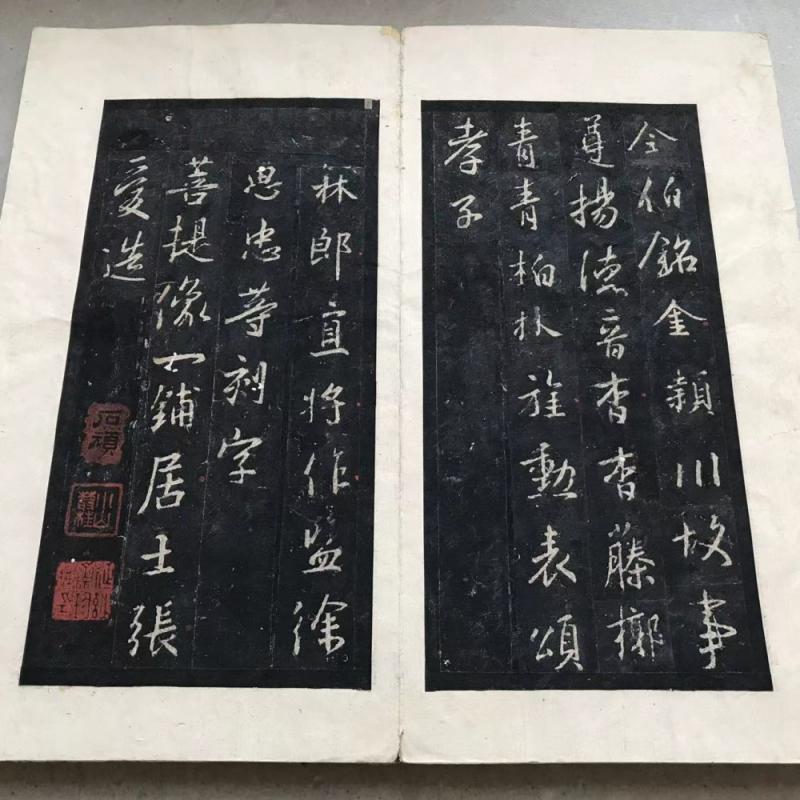 令伯銘金潁川故事
遵揚德音杳杳藤槨
青青柏林旌勳表頌
孝子
林郎直將作監徐
思忠等刻字
菩提像一鋪居士張
愛造
石頑
小山叢桂